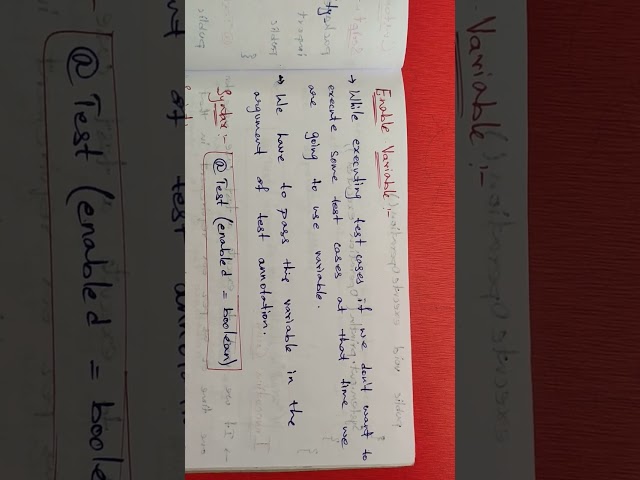 Enable Variable:-
→ While executing test cases if we don't want to
execute some test cases at that time we
are going to use variable.
→ We have to pass this variable in the
argument of test annotation.
Syntax:- @Test (enabled = boolean)